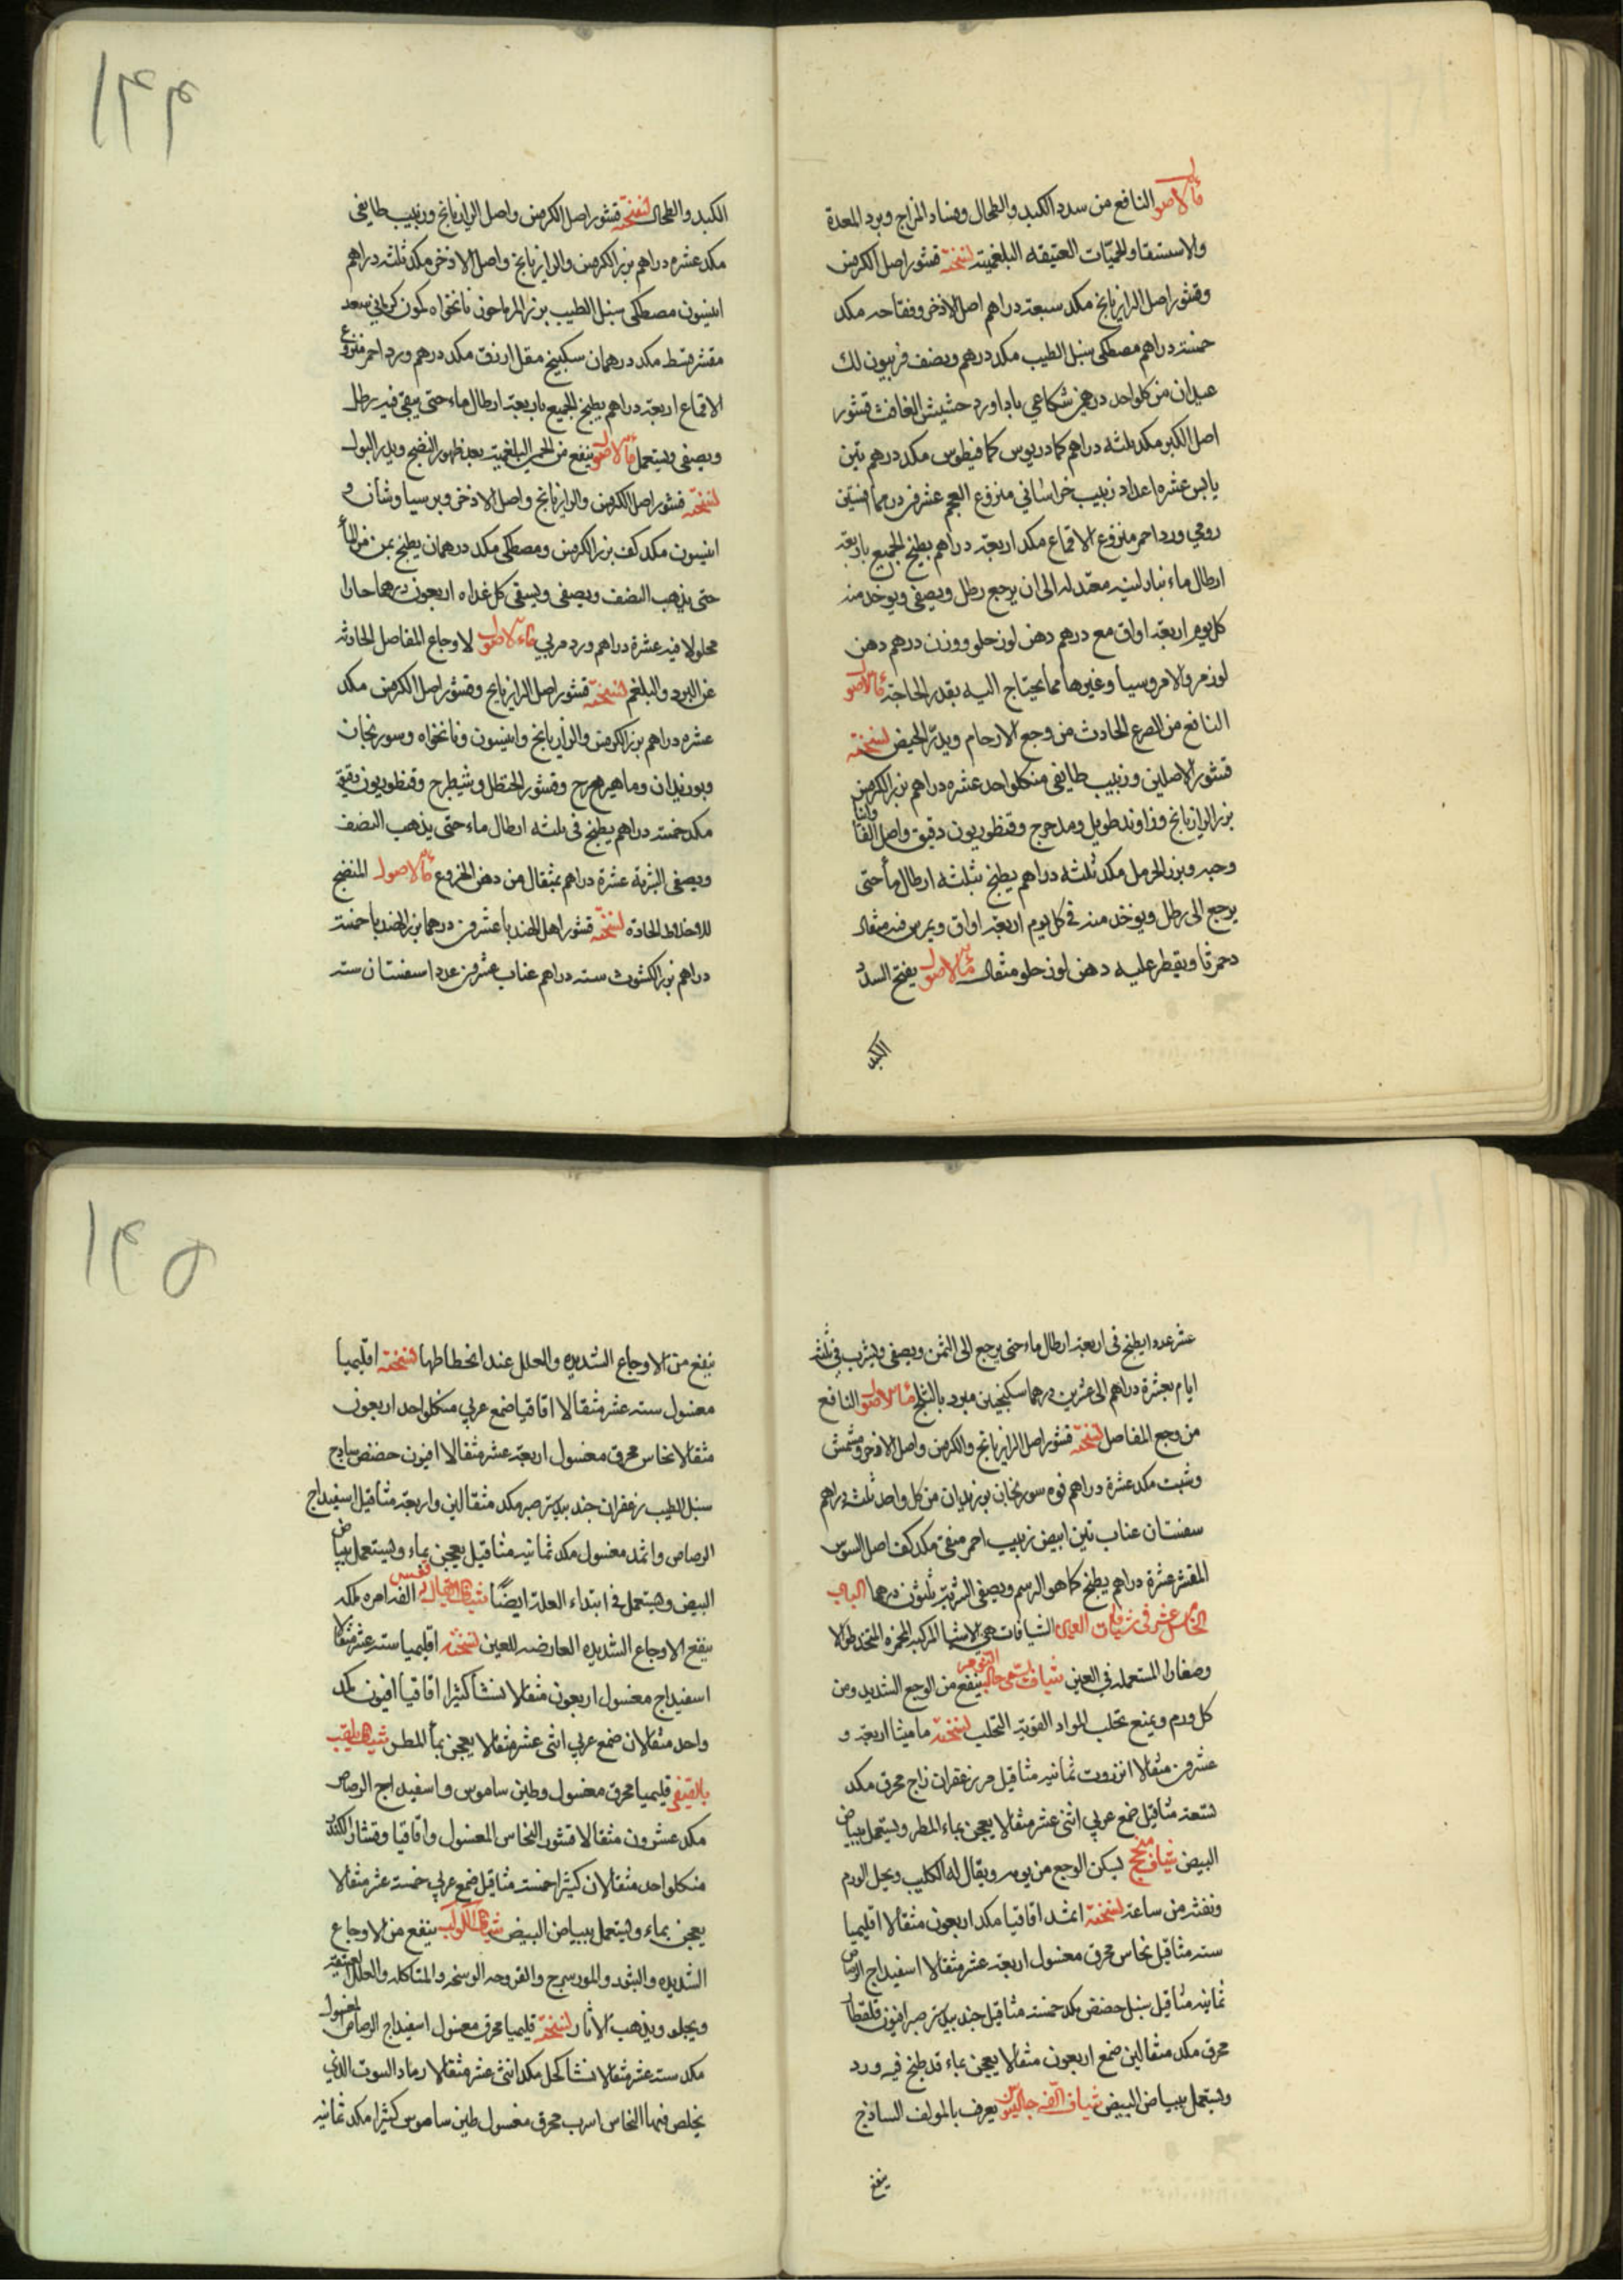 ماء الاصول النافع من سدد الكبد والطحال وفساد المزاج وبرد المعدة
والاستسقا والحميّات العتيقه البلغميته نسخته قشور اصل الكرفس
وقشور اصل الرازيانج مكد سبعة دراهم اصل الاذخر وفقاحه مكد
خمسة دراهم مصطكى سنبل الطيب مكد درهم ونصف فربيون لك
عيدان من كلواحد درهمين شكاعي باداورد حشيش الغافث قشور
اصل الكبر مكد ثلثه دراهم كمادريوس كمافيطوس مكد درهم تين
يابس عشره اعداد زبيب خراساني منزوع العجم عشرين درهما افسنتين
رومي ورد احمر منزوع الاقماع مكد اربعة دراهم يطبخ الجميع باربعة
ارطال ماء بنار لينه معتدله الى ان يرجع رطل ويصفى ويوخذ منه
كل يوم اربعة اواق مع درهم دهن لوز حلو ووزن درهم دهن
لوز مر والامروسيا وغيرها مما يحتاج اليه بقدر الحاجة ماء الاصول
النافع من الصرع الحادث من وجع الارحام ويدرّ الحيض نسخته
قشور الاصلين وزبيب طايفي من كلواحد عشره دراهم بزر الكرفس
بزر الرازيانج وزراوند طويل ومدحرج وقنطوريون دقيق واصل الفاوانيا
وحبه وبزر الحرمل مكد ثلثه دراهم يطبخ بثلثه ارطال ماء حتى
يرجع الى رطل ويوخذ منه في كل يوم اربعة اواق ويمرس فيه مثقال
دحمرثا ويقطر عليه دهن لوز حلو مثقال ماء الاصول يفتح السدد
الكبد
١۴۴
الكبد والطحال نسخته قشور اصل الكرفس واصل الرازيانج وزبيب طايفي
مكد عشره دراهم بزر الكرفس والرازيانج واصل الاذخر مكد ثلثه دراهم
انيسون مصطكى سنبل الطيب بزر المرماحوز نانخواه كمون كرماني سعد
مقشر قسط مكد درهمان سكبينج مقل ازرق مكد درهم ورد احمر منزوع
الاقماع اربعة دراهم يطبخ الجميع باربعة ارطال ماء حتى يبقى فيه رطل
ويصفى ويستعمل ماء الاصول ينفع من الحمى البلغميته بعد ظهور النضج ويدر البول
نسخته قشور اصل الكرفس والرازيانج واصل الاذخر وبرسياوشان و
انيسون مكد كف بزر الكرفس ومصطكى مكد درهمان يطبخ بمن من الماء
حتى يذهب النصف ويصفى ويسقى كل غداه اربعون درهما حارا
محلولا فيه عشرة دراهم ورد مربي ماء الاصول لاوجاع المفاصل الحادثه
عن البرد والبلغم نسخته قشور اصل الرازيانج وقشور اصل الكرفس مكد
عشره دراهم بزر الكرفس والرازيانج وانيسون ونانخواه وسورنجان
وبوزيدان وماهيزهرج وقشور الحنظل وشيطرج وقنطوريون دقيق
مكد خمسة دراهم يطبخ في ثلثه ارطال ماء حتى يذهب النصف
ويصفى الشربة عشرة دراهم بمثقال من دهن الخروع ماء الاصول المنضج
للاخلاط الحاده نسخته قشور اصل الهندبا عشرين درهما بزر الهندبا خمسة
دراهم بزر الكشوث سته دراهم عناب عشرين عددا سفستان سته
عشر عددا يطبخ في اربعة ارطال ماء حتى يرجع الى الثمن ويصفى ويشرب في ثلثة
ايام بعشرة دراهم الى عشرين درهما سكنجبين مبرد بالثلج ماء الاصول النافع
من وجع المفاصل نسخته قشور اصل الرازيانج والكرفس واصل الاذخر ومشمش
وشبت مكد عشرة دراهم فوه سورنجان بوزيدان من كل واحد ثلثه دراهم
سفستان عناب تين ابيض زبيب احمر منقى مكد كف اصل السوس
المقشر عشرة دراهم يطبخ كما هو الرسم ويصفى الشربة ثلثون درهما الباب
الخامس عشر في شيافات العين الشيافات هي الاشيا المركبه المخمره المتخذ طولا
وصغارا المستعمله في العين شياف يسمى ينفع من الوجع الشديد ومن
كل ورم ويمنع تحلب المواد القويّة التحلب نسخته ماميثا اربعة و
عشرين مثقالا انزروت ثمانيه مثاقيل مر زعفران زاج محرق مكد
تسعة مثاقيل صمغ عربي اثنى عشر مثقالا يعجن بماء المطر ويستعمل ببياض
البيض شياف منجح يسكن الوجع من يومه ويقال له الكليب ويحل الورم
ونفثه من ساعته نسخته اثمد اقاقيا مكد اربعون مثقالا اقليميا
سته مثاقيل نحاس محرق مغسول اربعة عشر مثقالا اسفيداج الرصاص
ثمانيه مثاقيل سنبل حضض مكد خمسة مثاقيل جندبيدستر صبر افيون قلقطار
محرق مكد مثقالين صمغ اربعون مثقالا يعجن بماء قد طبخ فيه ورد
ويستعمل ببياض البيض شياف الفه جالينوس يعرف بالمولف الساذج
ينفع
١۴۵
ينفع من الاوجاع الشديده والعلل عند انحطاطها نسخته اقليميا
مغسول سته عشر مثقالا اقاقيا صمغ عربي من كلواحد اربعون
مثقالا نحاس محرق مغسول اربعة عشر مثقالا افيون حضض ساذج
سنبل الطيب زعفران جندبيدستر صبر مكد مثقالين واربعة مثاقيل اسفيداج
الرصاص واثمد مغسول مكد ثمانيه مثاقيل يعجن بماء ويستعمل ببياض
البيض ويستعمل في ابتداء العلة ايضًا شياف الفه امره لملكه
ينفع الاوجاع الشديده العارضه للعين نسخته اقليميا سته عشر مثقالا
اسفيداج مغسول اربعون مثقالا نشا كثيرا اقاقيا افيون كل
واحد مثقالان صمغ عربي اثنى عشر مثقالا يعجن بماء المطر شياف يلقب
قليميا محرق مغسول وطين ساموس واسفيداج الرصاص
مكد عشرون مثقالا قشور النحاس المغسول واقاقيا وقشار الكندر
من كلواحد مثقالان كثيرا خمسة مثاقيل صمغ عربي خمسة عشر مثقالا
يعجن بماء ويستعمل ببياض البيض شياف الكواكب ينفع من الاوجاع
الشديده والبثور والمورسرج والقروحه الوسخه والمتاكله والعلل العتيقة
ويجلو ويذهب الاثار نسخته قليميا محرق مغسول اسفيداج الرصاص المغسول
مكد سته عشر مثقالا نشا كحل مكد اثنى عشر مثقالا رماد البيوت الذي
يخلص فيها النحاس اسرب محرق مغسول طين ساموس كثيرا مكد ثمانيه